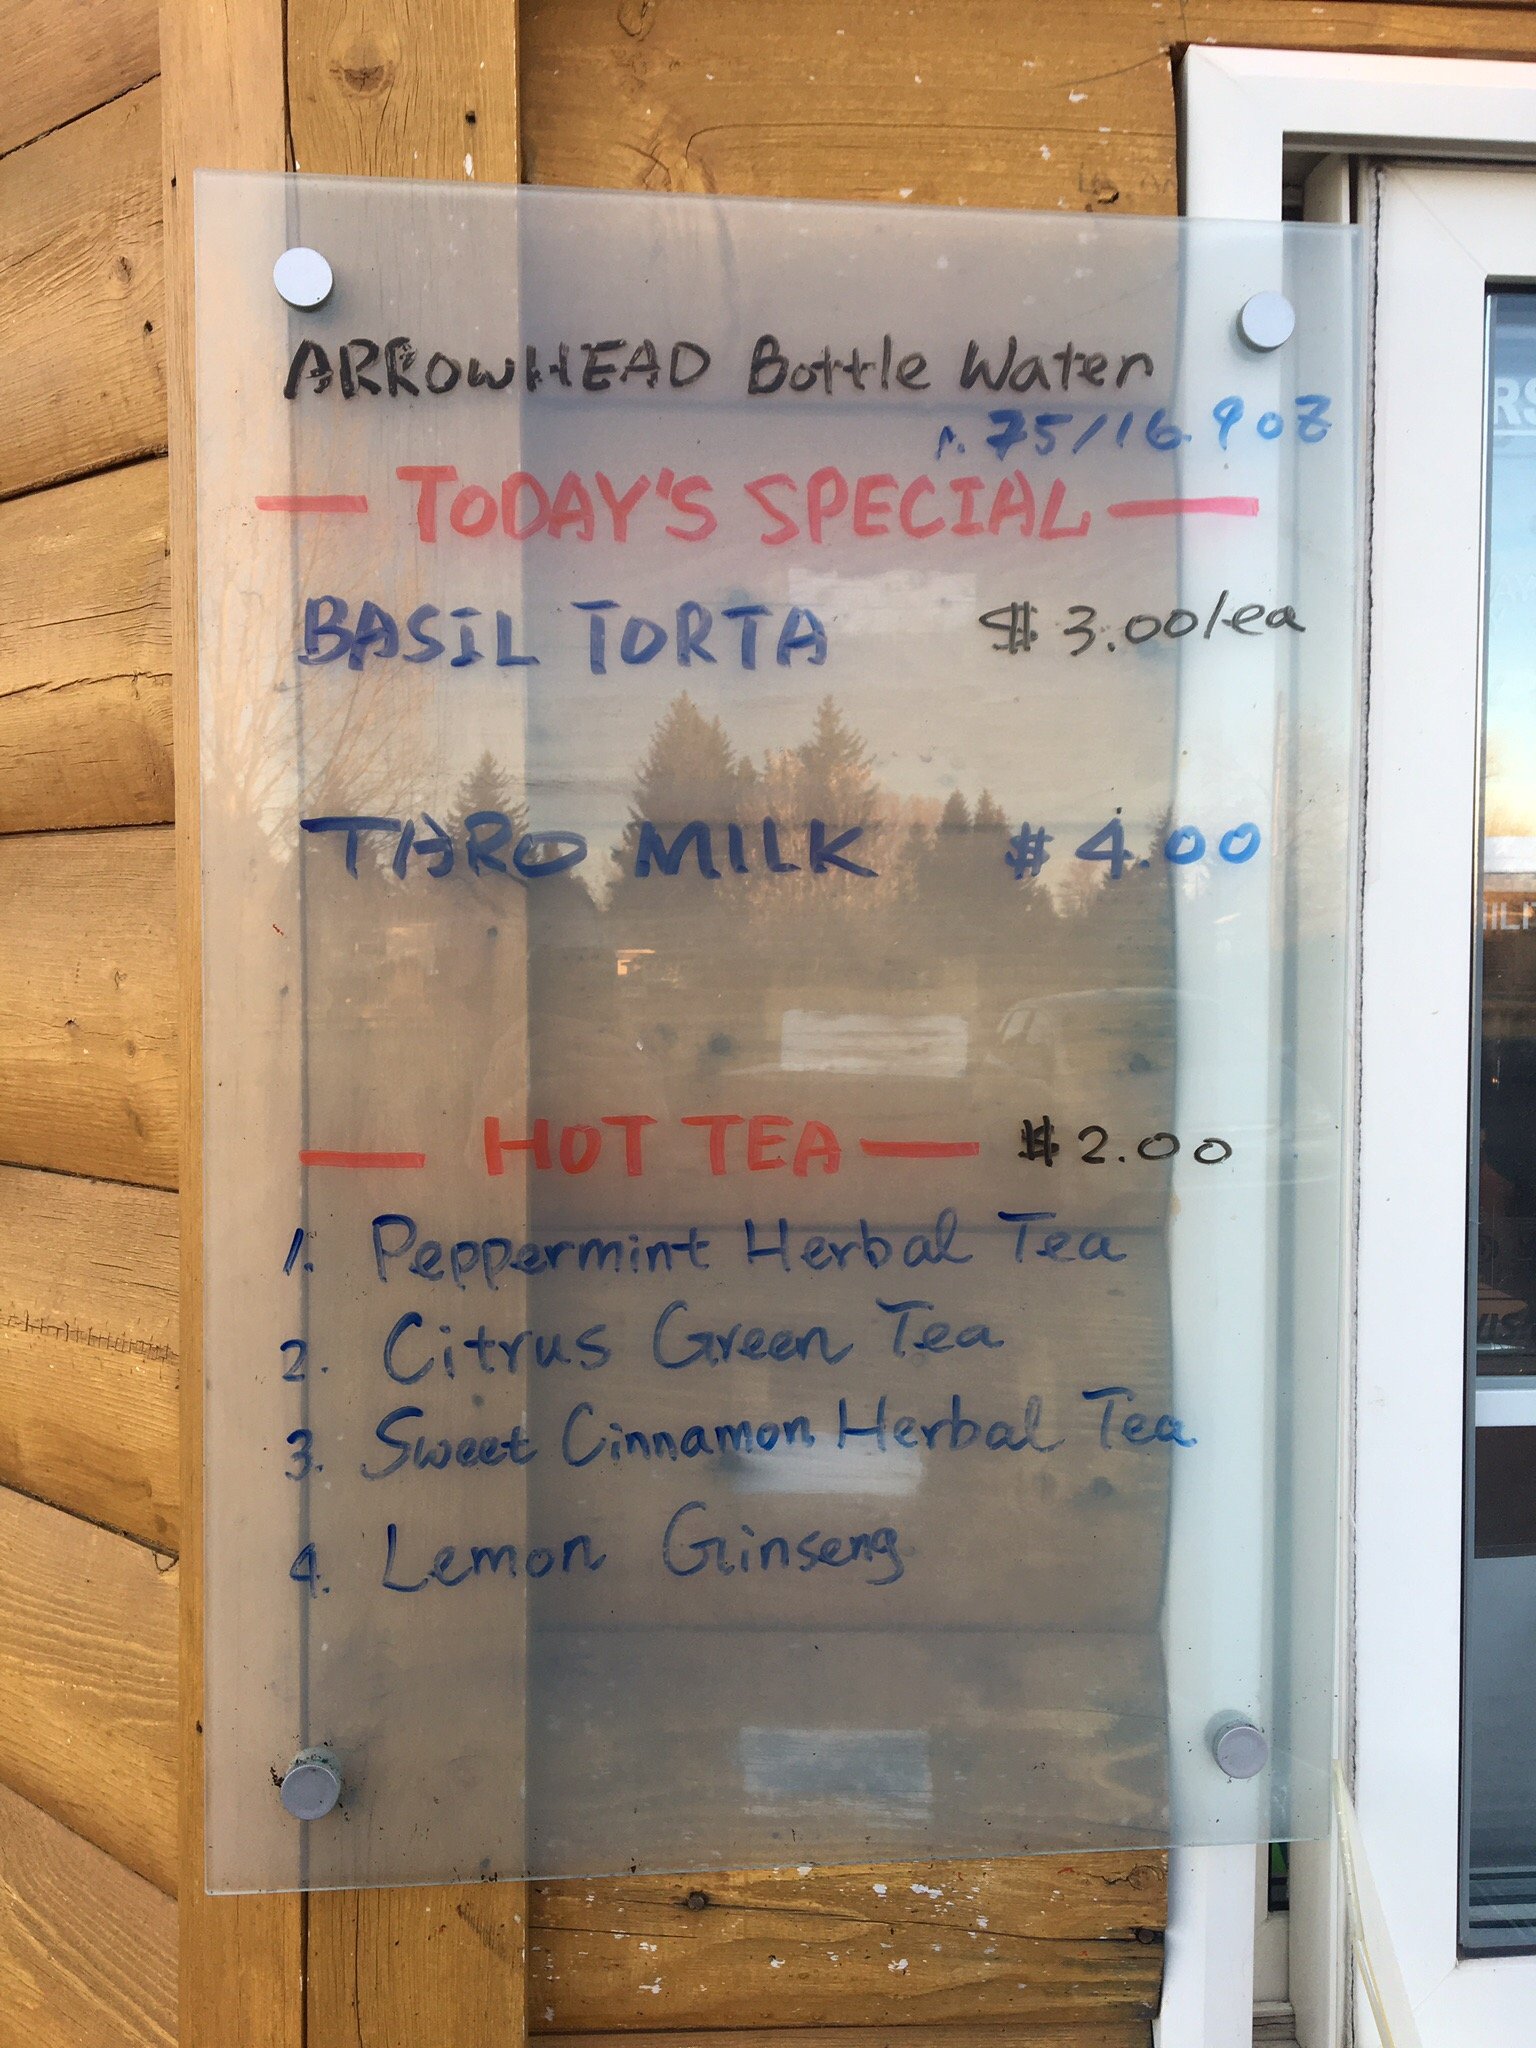 ARROWHEAD Bottle Water
.75/16.9oz
— TODAY'S SPECIAL —
BASIL TORTA $3.00/ea
TARO MILK $4.00
— HOT TEA — $2.00
1. Peppermint Herbal Tea
2. Citrus Green Tea
3. Sweet Cinnamon Herbal Tea
4. Lemon Ginseng